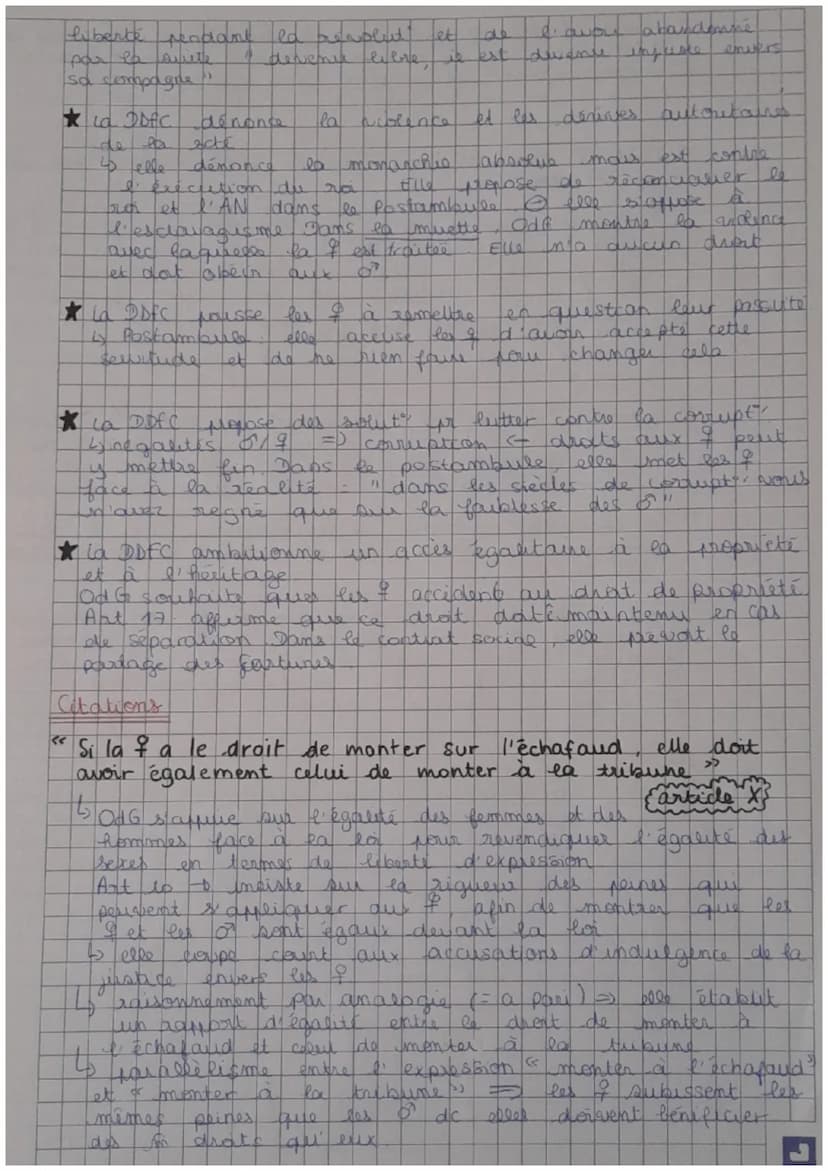 liberté pendant la révolut° et de l'avoir abandonné
par la suite "devenu libre, il est devenu injuste envers
sa compagne"
★ La DDFC dénonce la violence et les dérives autoritaires
de la
↳ elle dénonce la monarchie absolue mais est contre
l'exécution du roi Elle propose de réconcilier le
roi et l'AN dans le Postambule ⊖ elle s'oppose à
l'esclavagisme Dans la muette, OdG montre la violence
avec laquelle la ♀ est traitée Elle n'a aucun droit
et doit obéir aux ♂
★ La DDFC pousse les ♀ à remettre en question leur passivité
↳ Postambule elle accuse les ♀ d'avoir accepté cette
servitude et de ne rien faire pour changer cela
★ La DDFC propose des solut° pr lutter contre la corrupt°
↳ inégalités ♂/♀ => corruption ← droits aux ♀ peut
y mettre fin. Dans le postambule, elle met les ♀
face à la réalité : "dans les siècles de corrupt° vous
n'avez régné que sur la faiblesse des ♂"
★ La DDFC ambitionne un accès égalitaire à la propriété
et à l'héritage
OdG souhaite que les ♀ accèdent au droit de propriété
Art 17 affirme que ce droit doit maintenu en cas
de séparation Dans le contrat social, elle prévoit le
partage des fortunes
Citations
"Si la ♀ a le droit de monter sur l'échafaud, elle doit
avoir également celui de monter à la tribune"
article X
↳ OdG s'appuie sur l'égalité des femmes et des
hommes face à la loi pour revendiquer l'égalité des
sexes en termes de liberté d'expression
Art 10 → insiste sur la rigueur des peines qui
peuvent s'appliquer aux ♀, afin de montrer que les
♀ et les ♂ sont égaux devant la loi
↳ elle coupe court aux accusations d'indulgence de la
justice envers les ♀
↳ raisonnement par analogie (= a pari) => elle établit
un rapport d'égalité entre le droit de monter à
l'échafaud et celui de monter à la tribune
↳ parallélisme entre l'expression "monter à l'échafaud"
et "monter à la tribune" => les ♀ subissent les
mêmes peines que les ♂ dc elles doivent bénéficier
des m̂ droits qu'eux